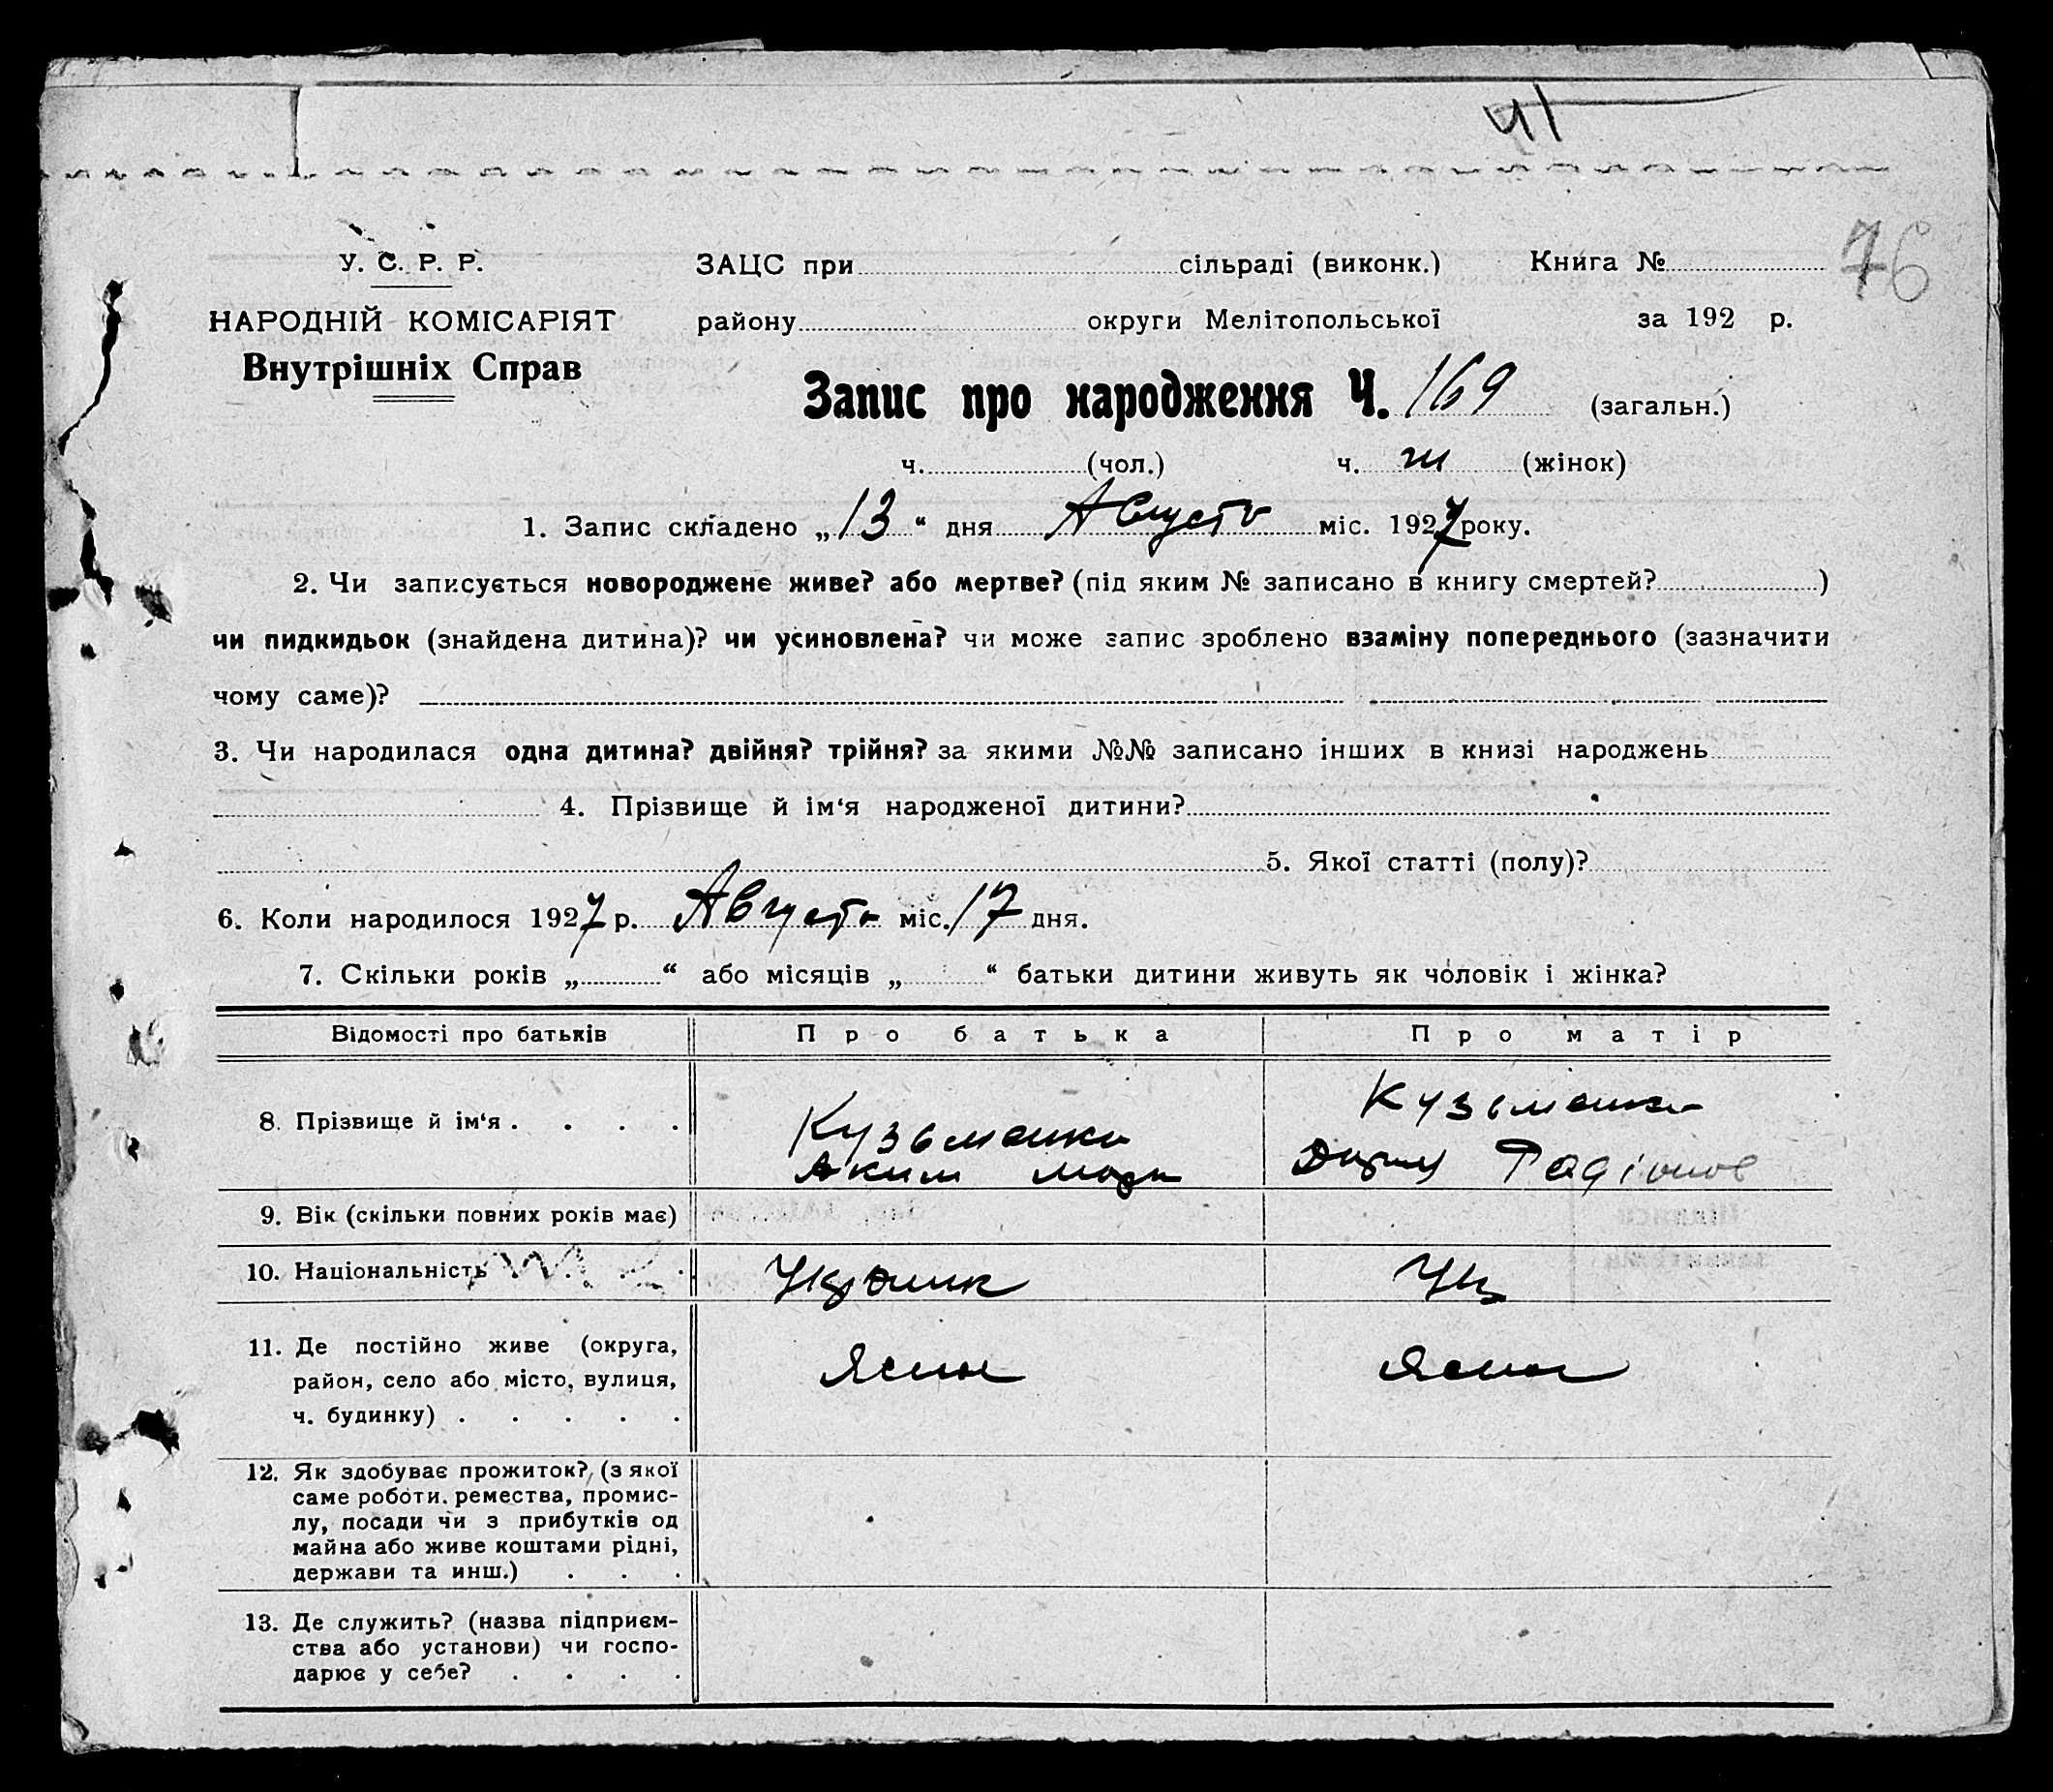 41
76
У. С. Р. Р.
НАРОДНІЙ КОМІСАРІЯТ
Внутрішніх Справ
ЗАЦС при сільраді (виконк.) Книга №
району округи Мелітопольської за 192 р.
Запис про народження Ч. 169 (загальн.)
ч. (чол.) ч. ж (жінок)
1. Запис складено „13“ дня Августа міс. 1927 року.
2. Чи записується новороджене живе? або мертве? (під яким № записано в книгу смертей? )
чи пидкидьок (знайдена дитина)? чи усиновлена? чи може запис зроблено взаміну попереднього (зазначити
чому саме)?
3. Чи народилася одна дитина? двійня? трійня? за якими №№ записано інших в книзі народжень
4. Прізвище й ім‘я народженої дитини?
5. Якої статті (полу)?
6. Коли народилося 1927 р. Августа міс. 17 дня.
7. Скільки років „ “ або місяців „ “ батьки дитини живуть як чоловік і жінка?
Відомості про батьків Про батька Про матір
8. Прізвище й ім‘я . . . .
Кузьменко
Аким
Кузьменко
9. Вік (скільки повних років має)
10. Національність . . . .
11. Де постійно живе (округа,
район, село або місто, вулиця,
ч. будинку) . . . . .
12. Як здобуває прожиток? (з якої
саме роботи. ремества, промис-
лу, посади чи з прибутків од
майна або живе коштами рідні,
держави та инш.) . . .
13. Де служить? (назва підприєм-
ства або установи) чи госпо-
дарює у себе? . . . .